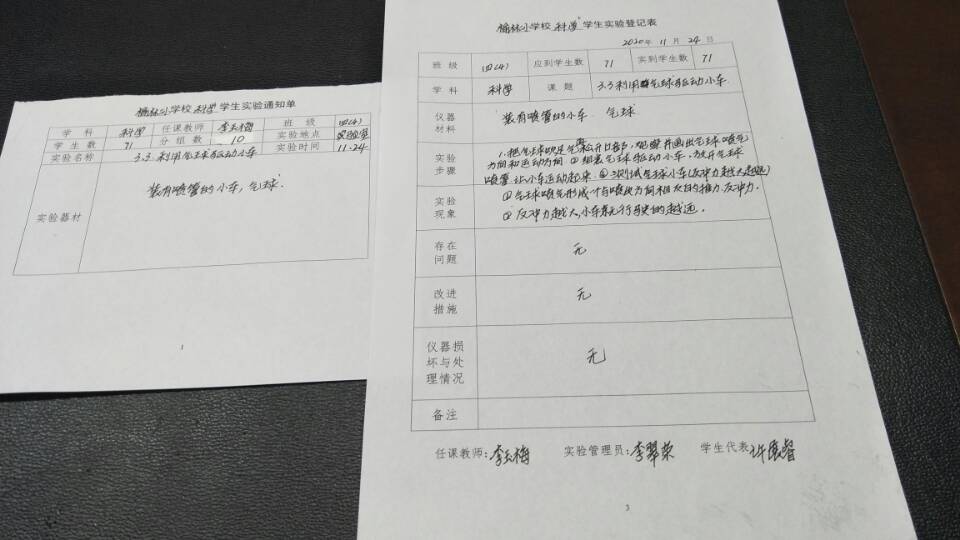 榆林小学校 科学 学生实验通知单
学 科 科学 任课教师 李玉梅 班 级 四(4)
学 生 数 71 分 组 数 10 实验地点 实验室
实验名称 3.3 利用气球驱动小车 实验时间 11.24
实验器材 装有喷管的小车,气球.
1
榆林小学校 科学 学生实验登记表
2020 年 11 月 24 日
班 级 四(4) 应到学生数 71 实到学生数 71
学 科 科学 课 题 3.3利用气球驱动小车
仪器
材料
装有喷管的小车 气球
实验
步骤
1.把气球吹足气 观察并画出气球喷气
方向和运动方向.②组装气球驱动小车,放开气球
喷管让小车运动起来.③测试气球小车(反冲力越大越远)
实验
现象
①气球喷气形成一个与喷出方向相反的推力,反冲力.
②反冲力越大,小车 行驶的越远.
存在
问题
无
改进
措施
无
仪器损
坏与处
理情况
无
备注
任课教师:李玉梅 实验管理员:李翠荣 学生代表:许 睿
3